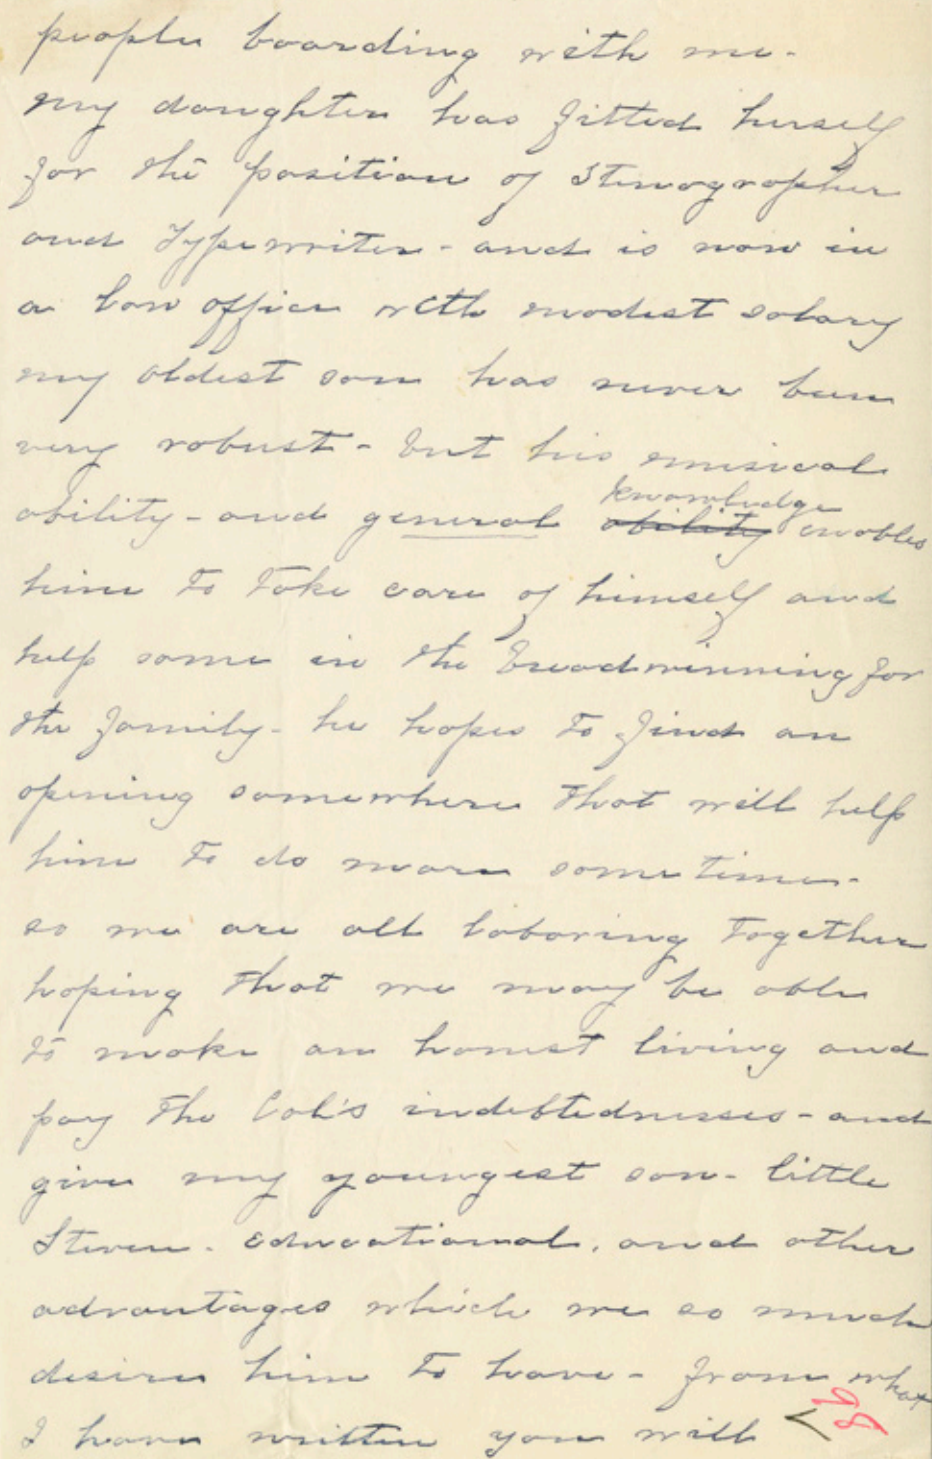 people boarding with me-
my daughter has fitted herself
for the position of Stenographer
and Typewriter - and is now in
a law office with modest salary
my oldest son has never been
very robust - but his musical
knowledge
ability - and general ability enables
him to take care of himself and
help some in the breadwinning for
the family - he hopes to find an
opening somewhere that will help
him to do more some time -
so we are all laboring together
hoping that we may be able
to make an honest living and
pay the Col's indebtednesses - and
give my youngest son - little
Steven - educational, and other
advantages which we so much
desire him to have - from what
I have written you will